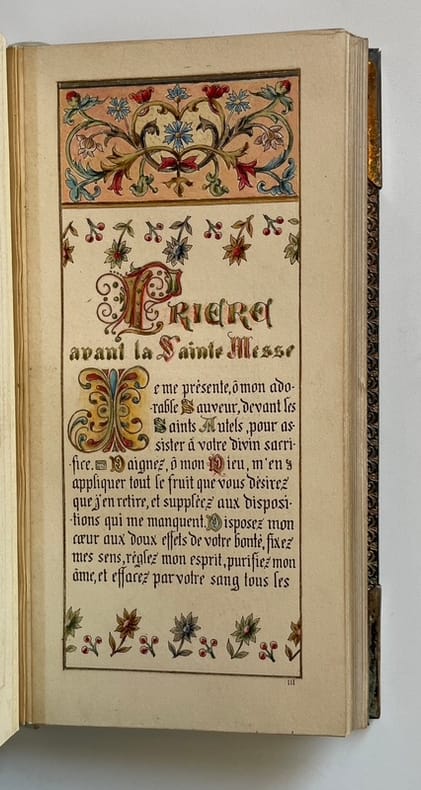 Prière
avant la Sainte Messe
Je me présente, ô mon ado-
-rable Sauveur, devant les
Saints Autels, pour as-
sister à votre divin sacri-
-fice. Daignez, ô mon Dieu, m'en
appliquer tout le fruit que vous désirez
que j'en retire, et suppléez aux disposi-
-tions qui me manquent. Disposez mon
cœur aux doux effets de votre bonté, fixez
mes sens, réglez mon esprit, purifiez mon
âme, et effacez par votre sang tous les
III